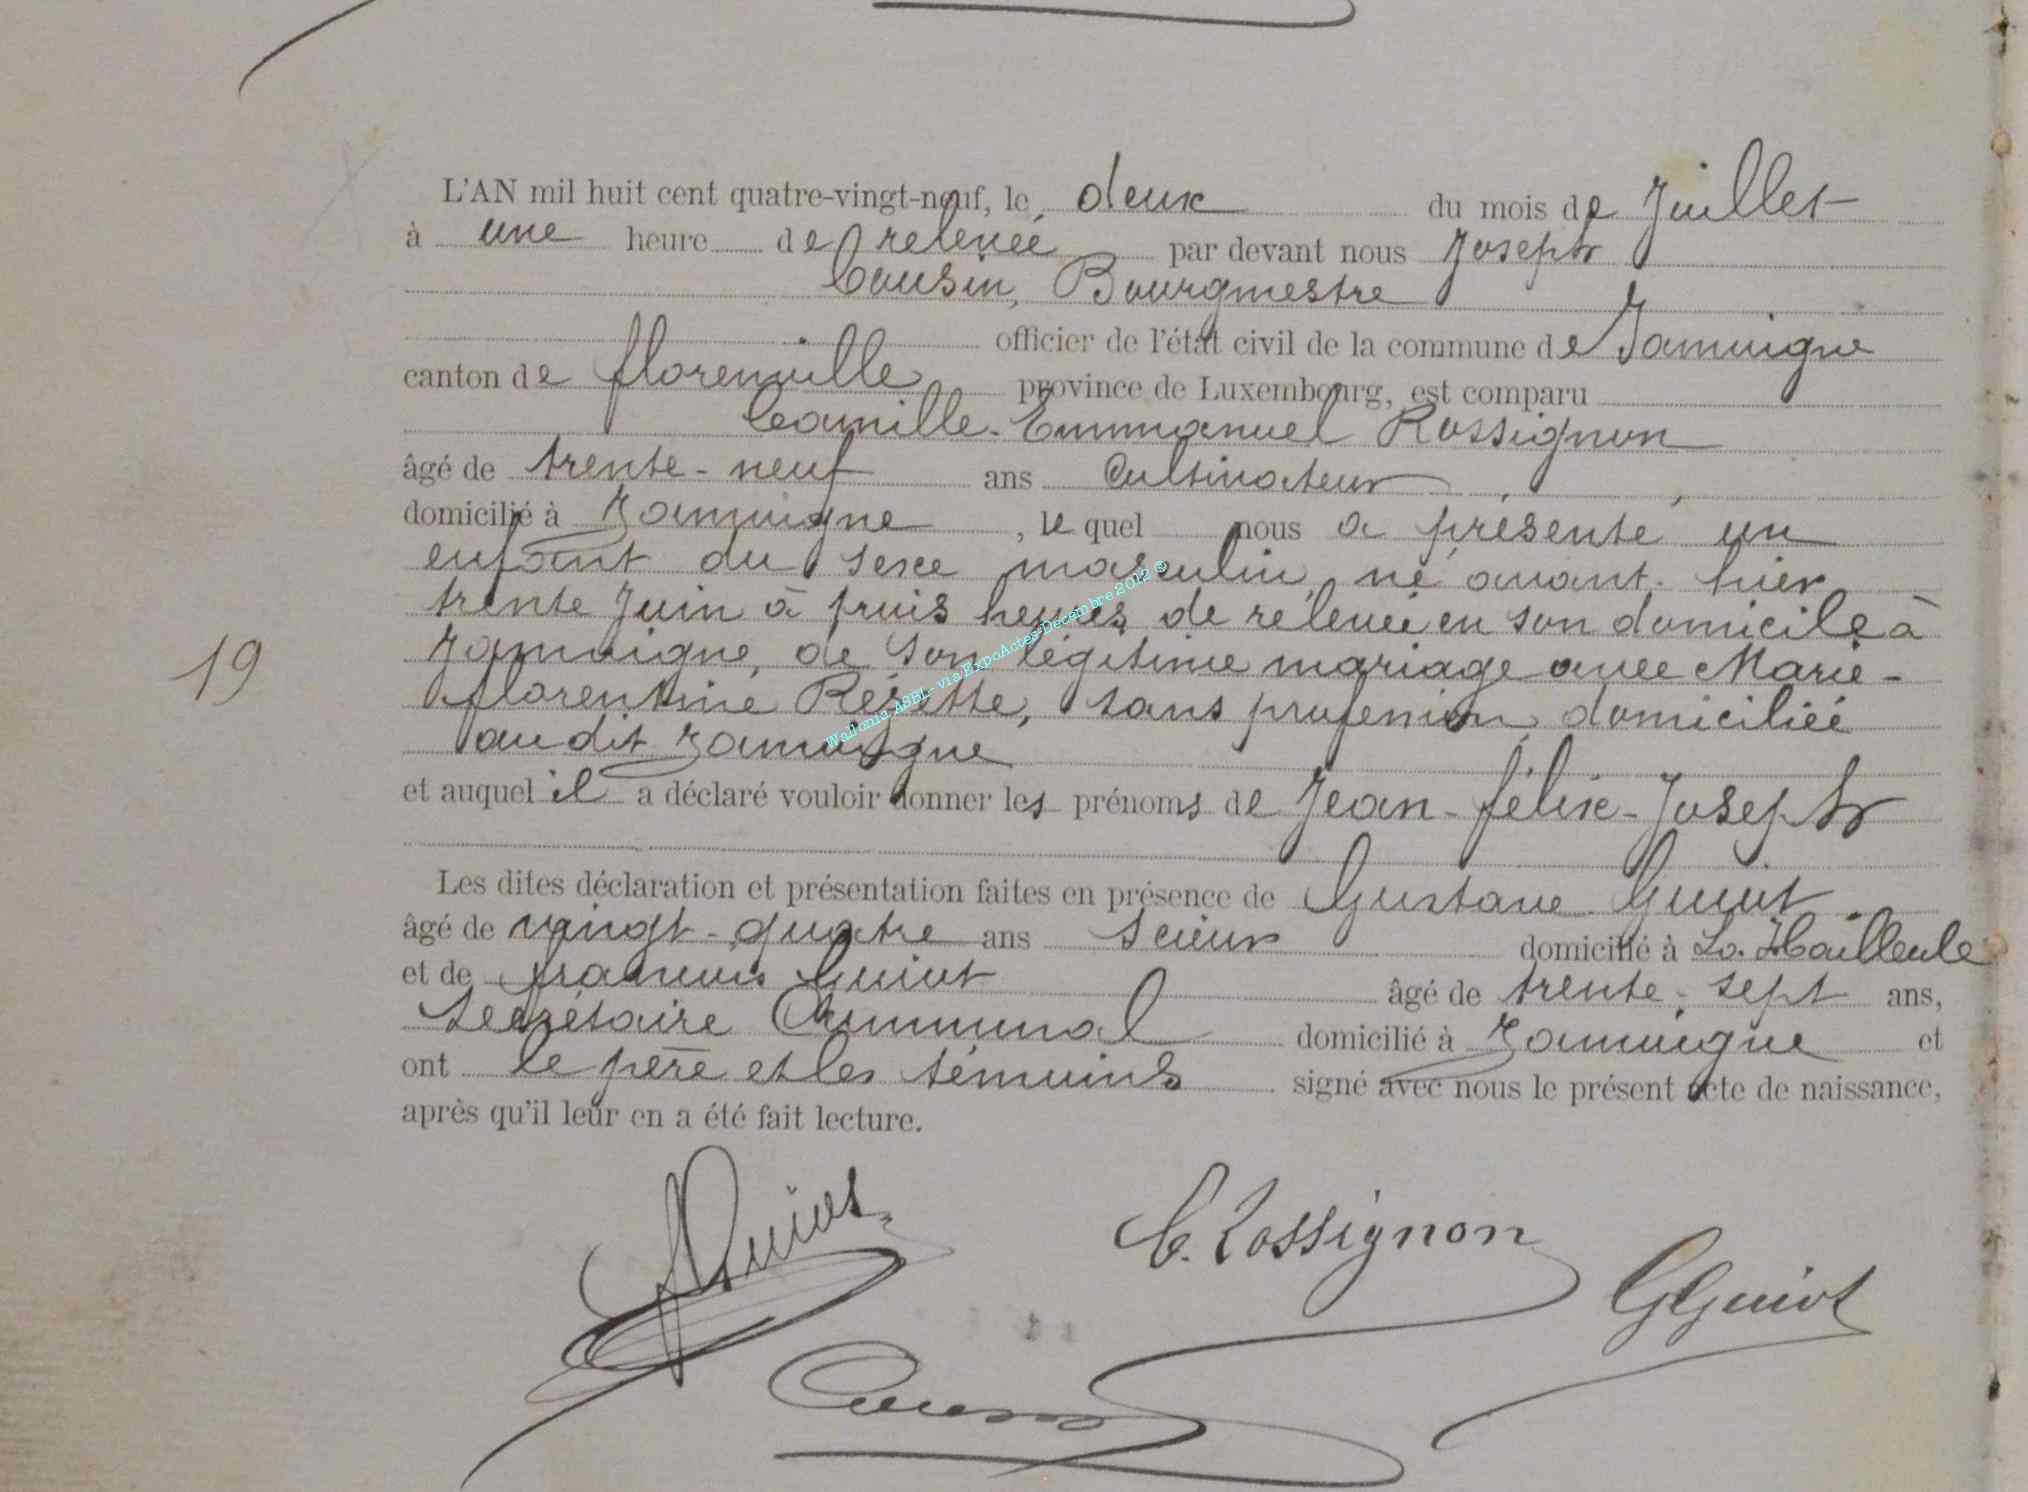 L'AN mil huit cent quatre-vingt-neuf, le deux du mois de Juillet
à une heure de relevée par devant nous Joseph
Cousin, Bourgmestre
officier de l'état civil de la commune de Jamoigne
canton de florenville province de Luxembourg, est comparu
Camille-Emmanuel Rossignon
âgé de trente-neuf ans Cultivateur
domicilié à Jamoigne, le quel nous a présenté un
enfant du sexe masculin, né avant-hier
trente Juin à trois heures de relevée en son domicile à
Jamoigne, de son légitime mariage avec Marie-
florentine Résette, sans profession, domiciliée
audit Jamoigne
et auquel il a déclaré vouloir donner les prénoms de Jean-félix-Joseph
19
Les dites déclaration et présentation faites en présence de Gustave Guiot
âgé de vingt-quatre ans scieur domicilié à La Hailleule
et de francois Guiot âgé de trente-sept ans,
Secrétaire Communal domicilié à Jamoigne et
ont le père et les témoins signé avec nous le présent acte de naissance,
après qu'il leur en a été fait lecture.
Guiot
C. Rossignon
G Guiot
Cousin
Wallonia ASBL - via ExpoActes-Decembre 2012 ®